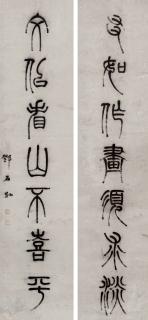 友如作畫須求淡
文佀看山不喜平
鄧石如